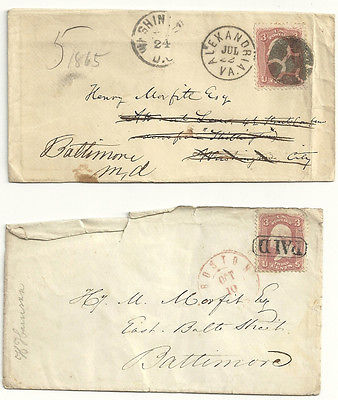 5
1865
WASHINGTON
24
D.C.
ALEXANDRIA
JUL
22
VA.
3
3
U
Henry Morfitt Esq
Baltimore
Md
Washington City
BOSTON
OCT
10
3
3
PAID
Hy M. Morfit Esq
East Balto Street
Baltimore